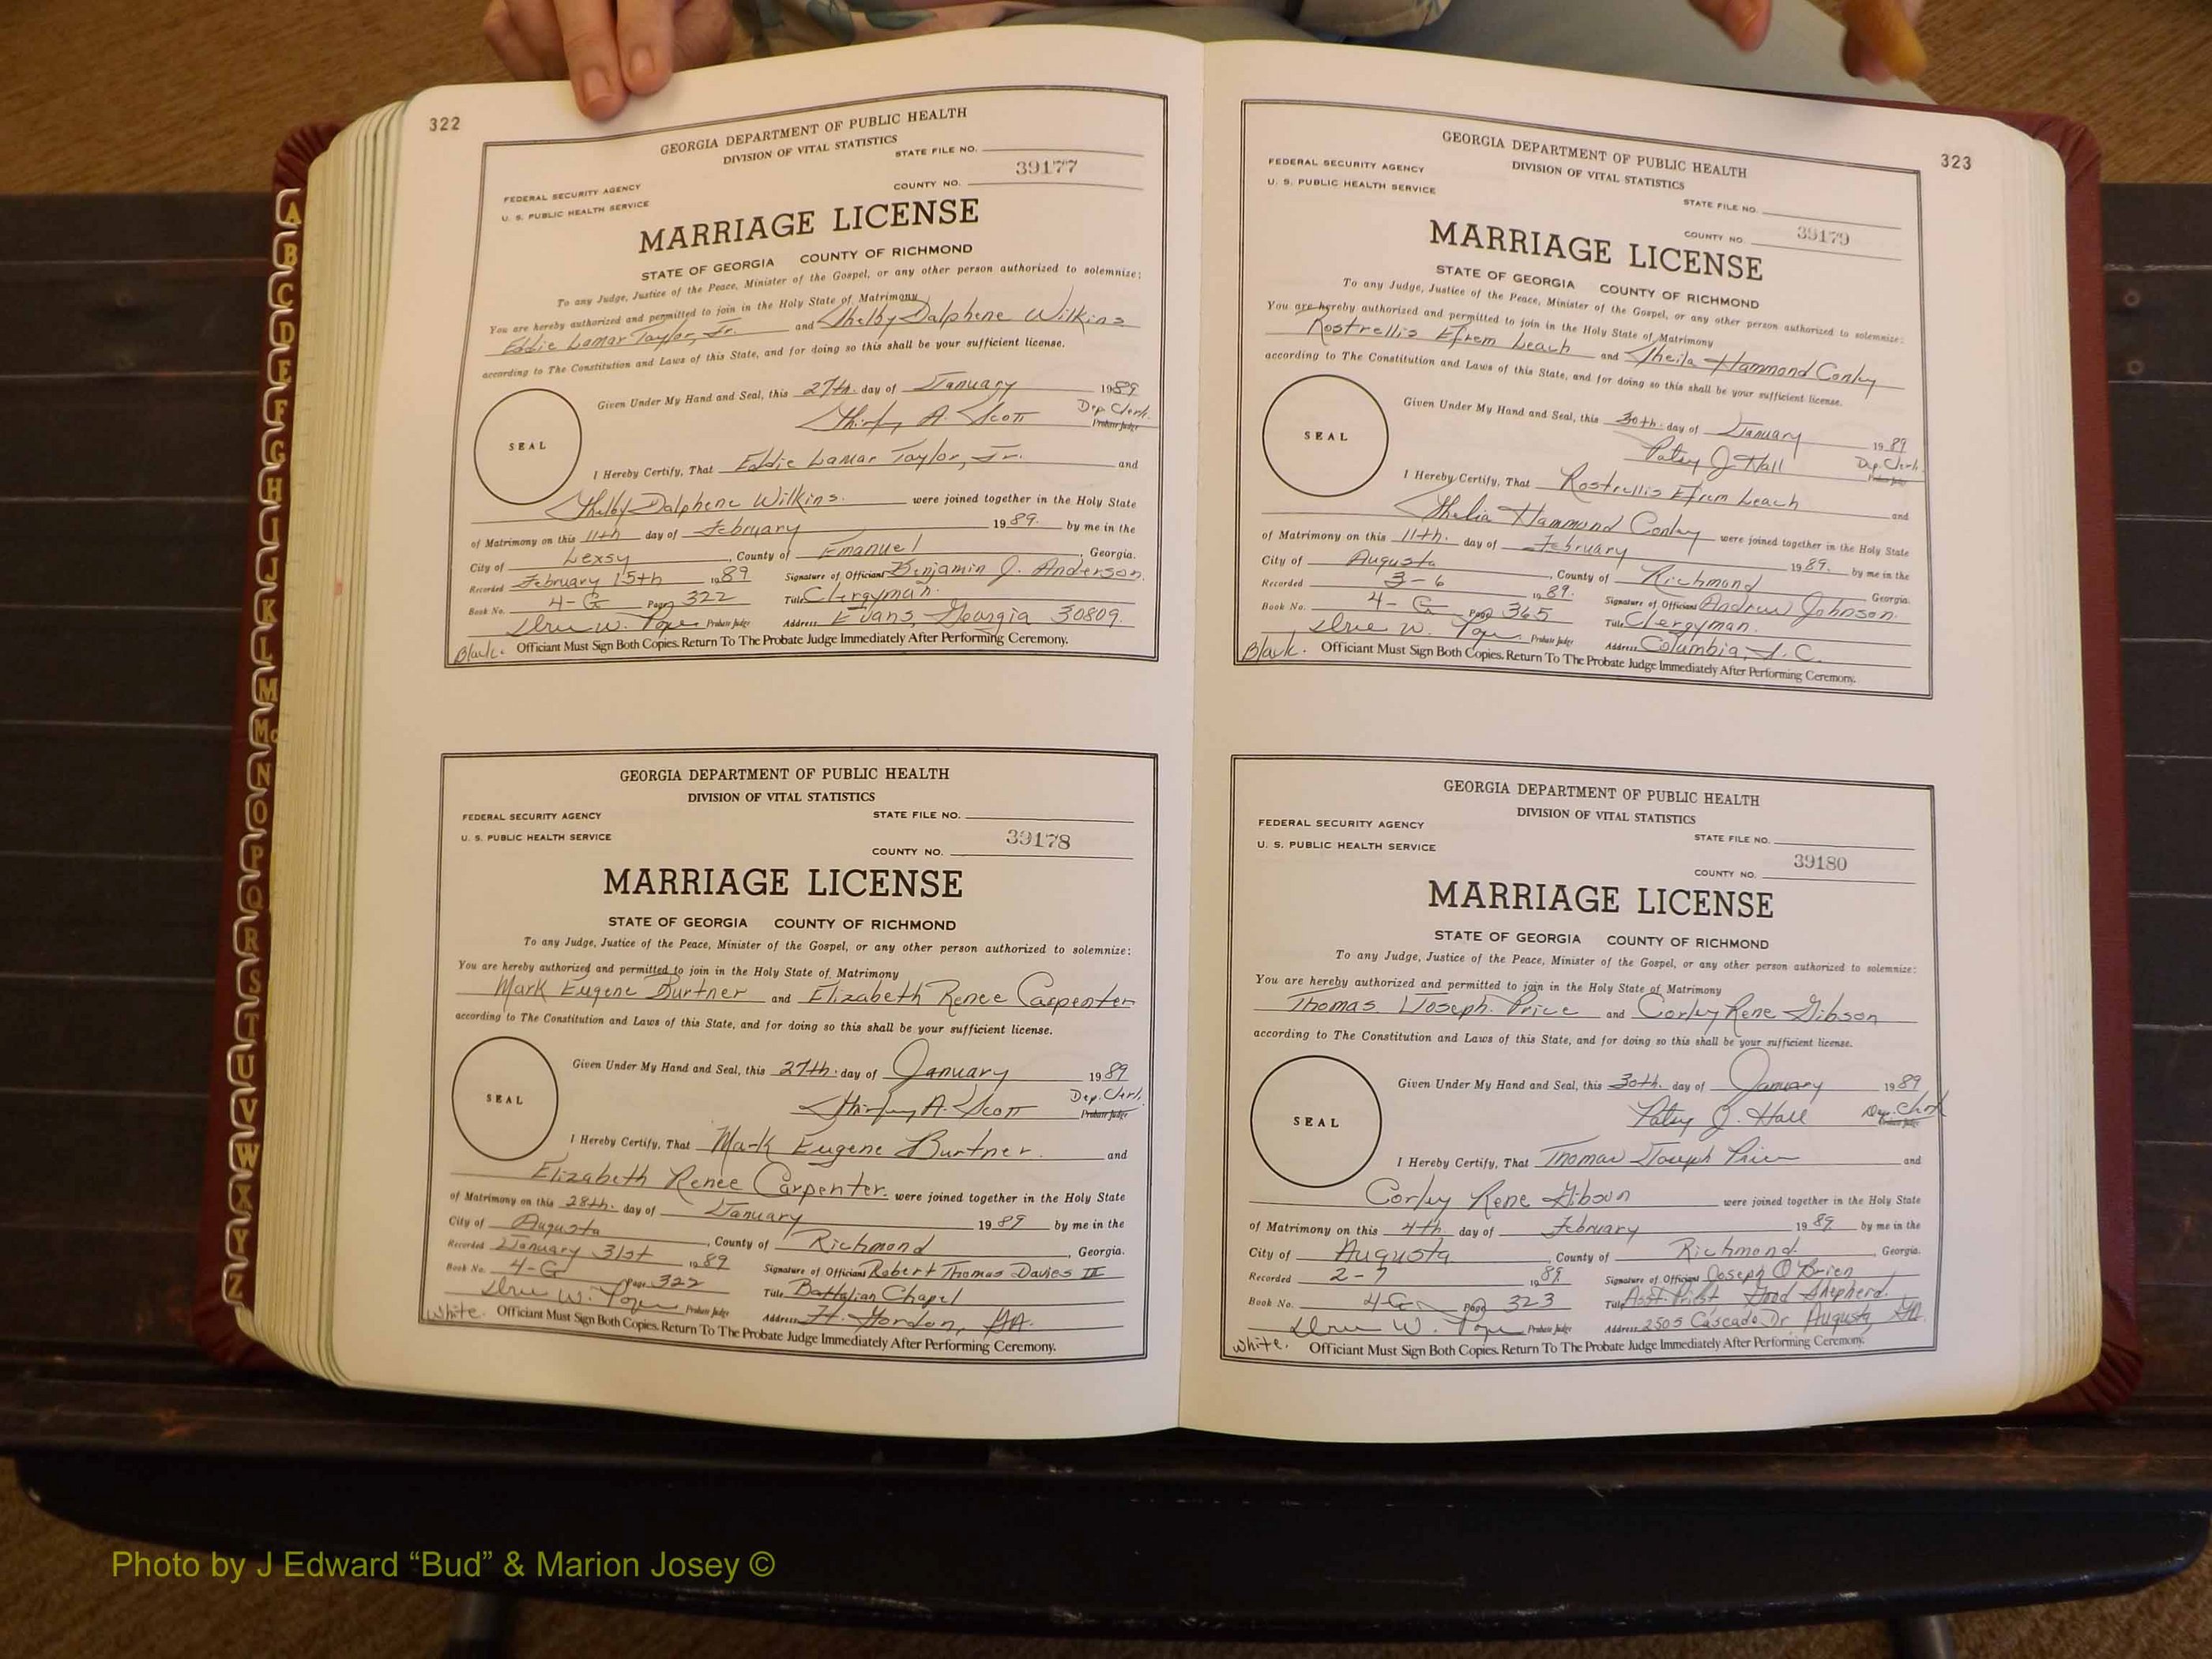 322
GEORGIA DEPARTMENT OF PUBLIC HEALTH
DIVISION OF VITAL STATISTICS
STATE FILE NO.
FEDERAL SECURITY AGENCY
U. S. PUBLIC HEALTH SERVICE
COUNTY NO. 39177
MARRIAGE LICENSE
STATE OF GEORGIA COUNTY OF RICHMOND
To any Judge, Justice of the Peace, Minister of the Gospel, or any other person authorized to solemnize:
You are hereby authorized and permitted to join in the Holy State of Matrimony
Eddie Lamar Taylor, Jr. and Shelby Dalphene Wilkins
according to The Constitution and Laws of this State, and for doing so this shall be your sufficient license.
Given Under My Hand and Seal, this 27th. day of January 1989
SEAL
Shirley A. Scott Dep. Clerk.
Probate Judge
I Hereby Certify, That Eddie Lamar Taylor, Jr. and
Shelby Dalphene Wilkins. were joined together in the Holy State
of Matrimony on this 11th day of February 1989. by me in the
City of Lexsy, County of Emanuel, Georgia.
Recorded February 15th 1989 Signature of Officiant Benjamin J. Anderson.
Book No. 4-G Page 322 Title Clergyman.
W. Pope Probate Judge Address Evans, Georgia 30809.
Black. Officiant Must Sign Both Copies. Return To The Probate Judge Immediately After Performing Ceremony.
GEORGIA DEPARTMENT OF PUBLIC HEALTH
DIVISION OF VITAL STATISTICS
FEDERAL SECURITY AGENCY STATE FILE NO.
U. S. PUBLIC HEALTH SERVICE
COUNTY NO. 39178
MARRIAGE LICENSE
STATE OF GEORGIA COUNTY OF RICHMOND
To any Judge, Justice of the Peace, Minister of the Gospel, or any other person authorized to solemnize:
You are hereby authorized and permitted to join in the Holy State of Matrimony
Mark Eugene Burtner and Elizabeth Renee Carpenter
according to The Constitution and Laws of this State, and for doing so this shall be your sufficient license.
Given Under My Hand and Seal, this 27th. day of January 1989
SEAL
Shirley A. Scott Dep. Clerk.
Probate Judge
I Hereby Certify, That Mark Eugene Burtner. and
Elizabeth Renee Carpenter. were joined together in the Holy State
of Matrimony on this 28th. day of January 1989 by me in the
City of Augusta, County of Richmond, Georgia.
Recorded January 31st 1989 Signature of Officiant Robert Thomas Davies III
Book No. 4-G Page 322 Title Battalian Chapel
W. Pope Probate Judge Address Ft. Gordon, GA.
White. Officiant Must Sign Both Copies. Return To The Probate Judge Immediately After Performing Ceremony.
323
GEORGIA DEPARTMENT OF PUBLIC HEALTH
DIVISION OF VITAL STATISTICS
FEDERAL SECURITY AGENCY
U. S. PUBLIC HEALTH SERVICE
STATE FILE NO.
COUNTY NO. 39179
MARRIAGE LICENSE
STATE OF GEORGIA COUNTY OF RICHMOND
To any Judge, Justice of the Peace, Minister of the Gospel, or any other person authorized to solemnize:
You are hereby authorized and permitted to join in the Holy State of Matrimony
Rostrellis Efrem Leach and Sheila Hammond Conley
according to The Constitution and Laws of this State, and for doing so this shall be your sufficient license.
Given Under My Hand and Seal, this 30th. day of January 1989
SEAL
Patsy J. Hall Dep. Clerk.
Probate Judge
I Hereby Certify, That Rostrellis Efrem Leach and
Shelia Hammond Conley were joined together in the Holy State
of Matrimony on this 11th. day of February 1989. by me in the
City of Augusta, County of Richmond Georgia.
Recorded 3-6 1989. Signature of Officiant Andrew Johnson.
Book No. 4-G Page 365 Title Clergyman.
W. Pope Probate Judge Address Columbia, S.C.
Black. Officiant Must Sign Both Copies. Return To The Probate Judge Immediately After Performing Ceremony.
GEORGIA DEPARTMENT OF PUBLIC HEALTH
DIVISION OF VITAL STATISTICS
FEDERAL SECURITY AGENCY STATE FILE NO.
U. S. PUBLIC HEALTH SERVICE
COUNTY NO. 39180
MARRIAGE LICENSE
STATE OF GEORGIA COUNTY OF RICHMOND
To any Judge, Justice of the Peace, Minister of the Gospel, or any other person authorized to solemnize:
You are hereby authorized and permitted to join in the Holy State of Matrimony
Thomas Joseph Price and Corley Rene Gibson
according to The Constitution and Laws of this State, and for doing so this shall be your sufficient license.
Given Under My Hand and Seal, this 30th. day of January 1989
SEAL
Patsy J. Hall Dep. Clerk
Probate Judge
I Hereby Certify, That Thomas Joseph Price and
Corley Rene Gibson were joined together in the Holy State
of Matrimony on this 4th. day of February 1989 by me in the
City of Augusta, County of Richmond. Georgia.
Recorded 2-7 1989. Signature of Officiant Joseph O'Brien
Book No. 4-G Page 323 Title Asst. Priest Good Shepherd.
W. Pope Probate Judge Address 2505 Cascade Dr Augusta, GA.
White. Officiant Must Sign Both Copies. Return To The Probate Judge Immediately After Performing Ceremony.
A
B
C
D
E
F
G
H
I
J
K
L
M
Mc
N
O
P
Q
R
S
T
U
V
W
X
Y
Z
Photo by J Edward “Bud” & Marion Josey ©